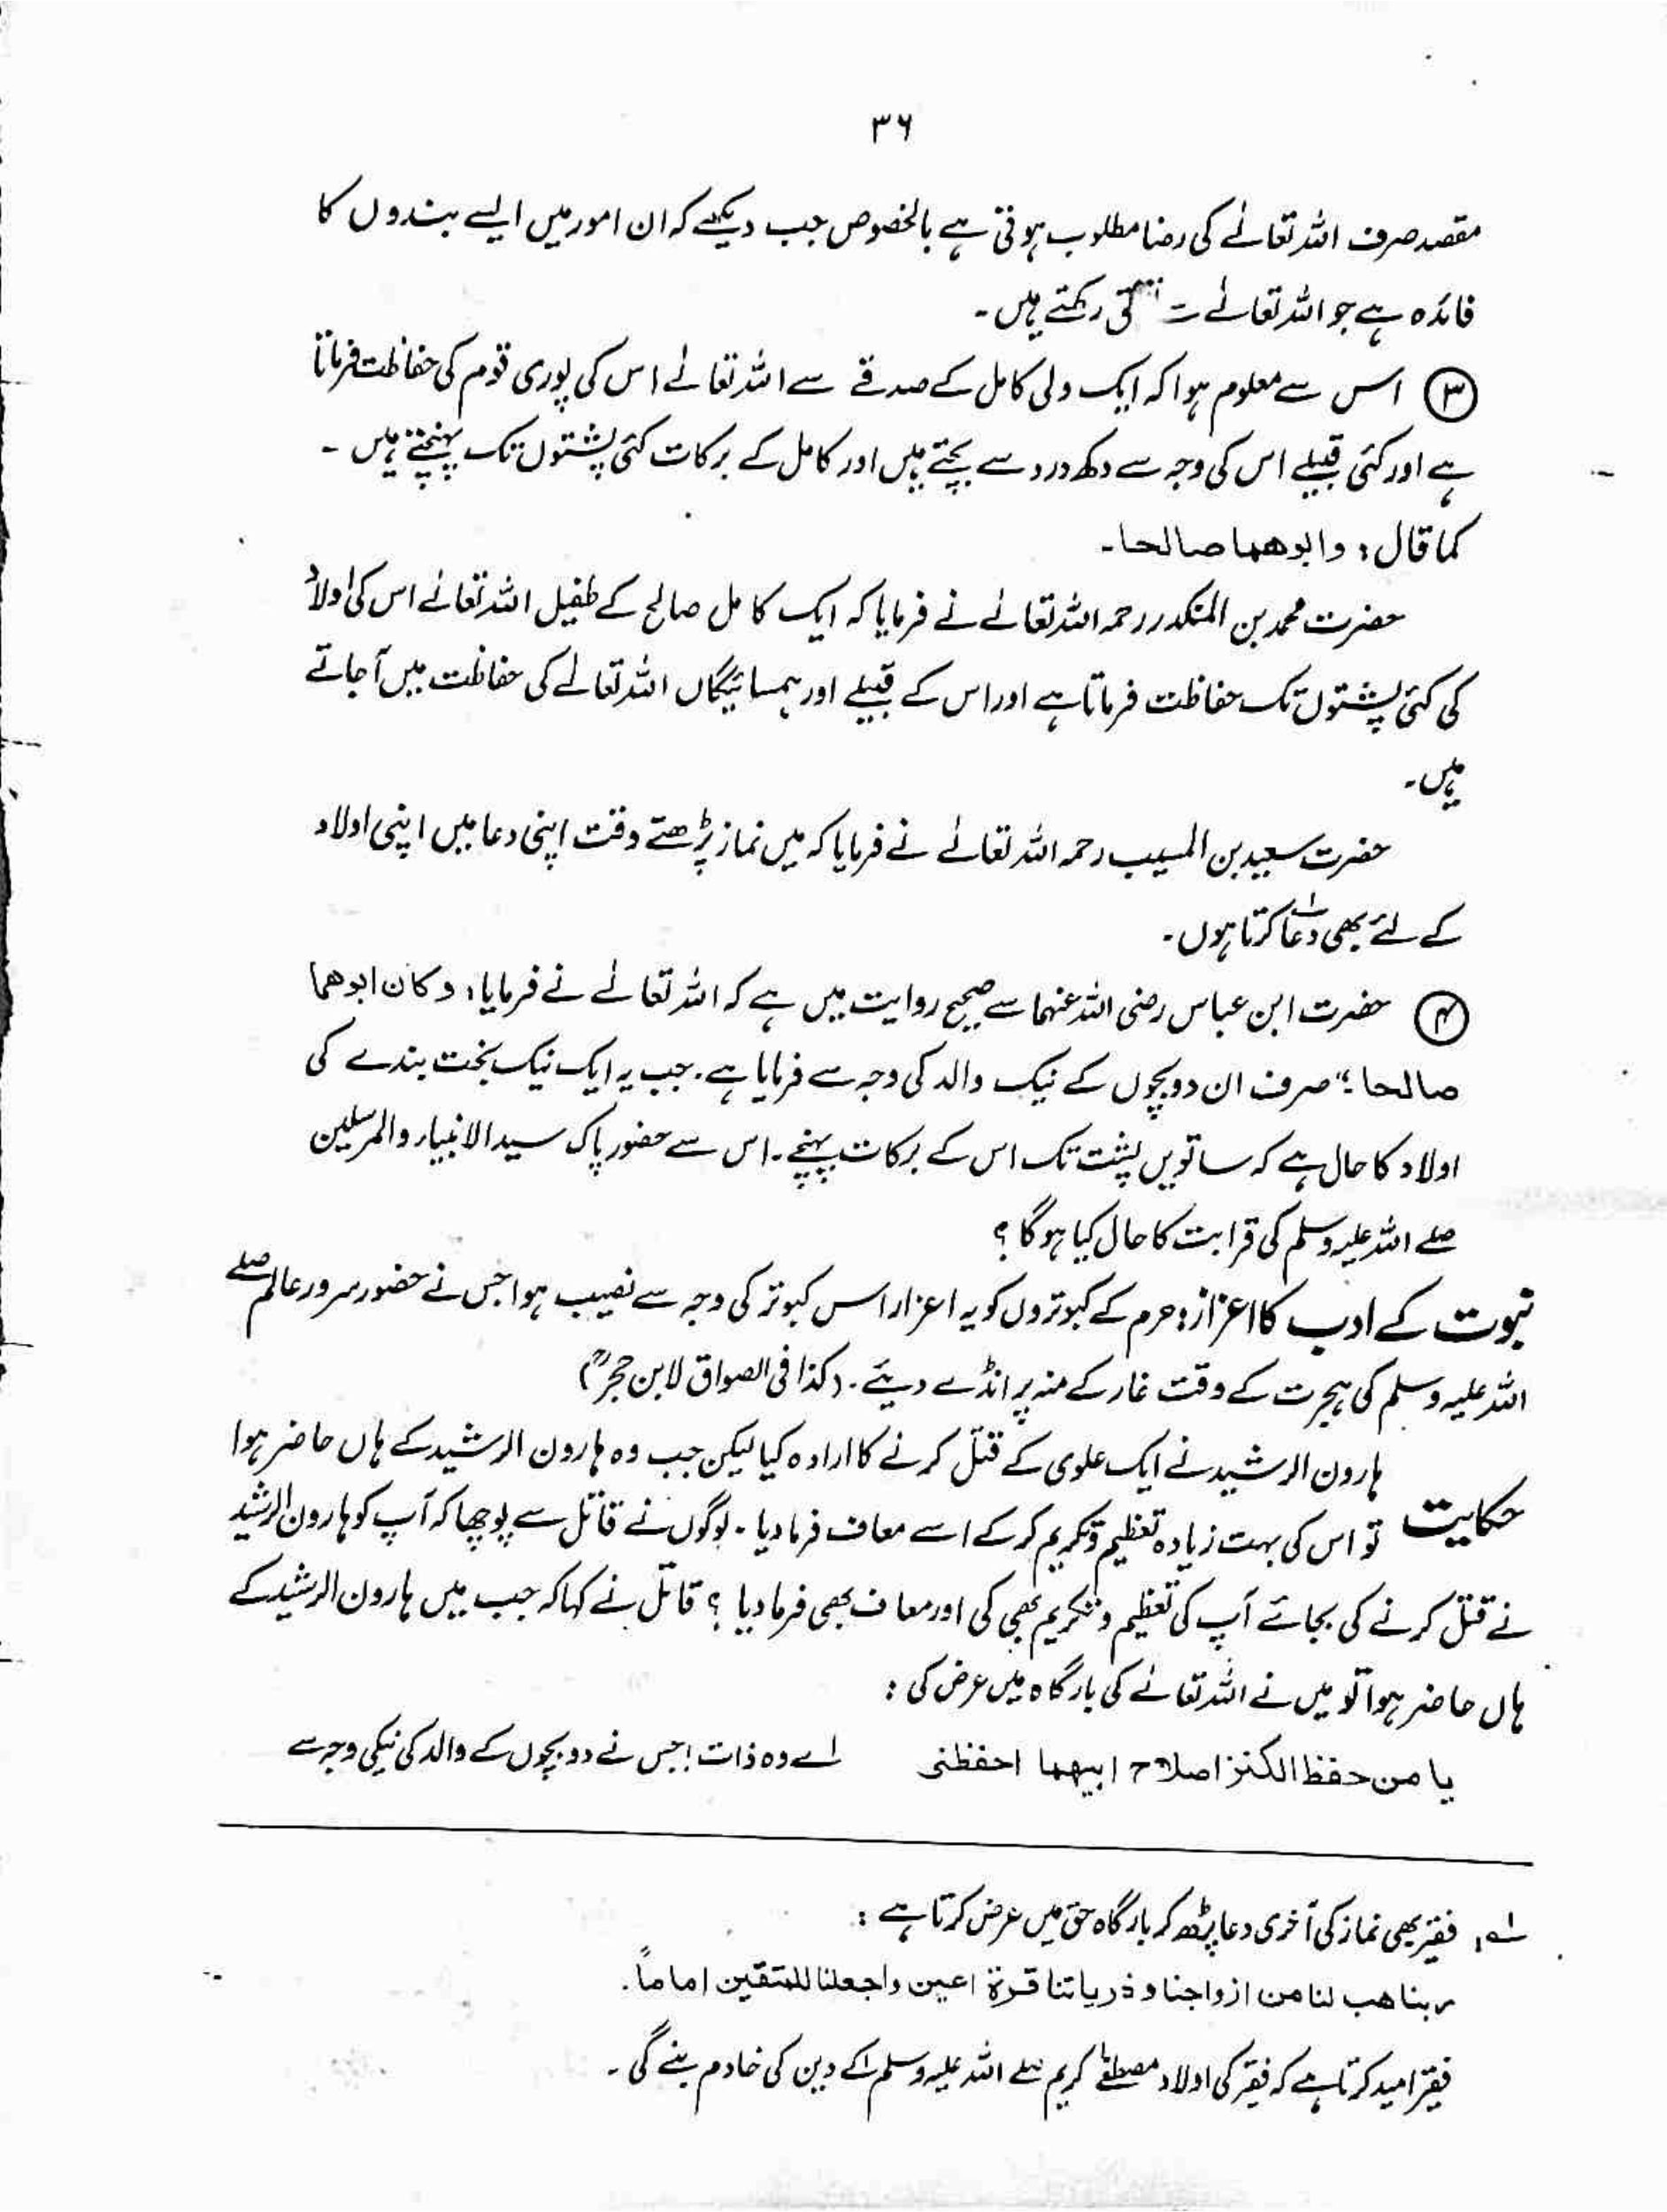 ۳۶
مقصد صرف اللہ تعالےٰ کی رضا مطلوب ہوتی ہے بالخصوص جب دیکھے کہ ان امور میں ایسے بندوں کا
فائدہ ہے جو اللہ تعالےٰ رکھتے ہیں۔
۳ اس سے معلوم ہوا کہ ایک ولی کامل کے صدقے سے اللہ تعالےٰ اس کی پوری قوم کی حفاظت فرماتا
ہے اور کئی قبیلے اس کی وجہ سے دکھ درد سے بچتے ہیں اور کامل کے برکات کئی پشتوں تک پہنچتے ہیں۔
کما قال: وابوھما صالحا۔
حضرت محمد بن المنکدر رحمہ اللہ تعالےٰ نے فرمایا کہ ایک کامل صالح کے طفیل اللہ تعالےٰ اس کی اولاد
کی کئی پشتوں تک حفاظت فرماتا ہے اور اس کے قبیلے اور ہمسائیگاں اللہ تعالےٰ کی حفاظت میں آجاتے
ہیں۔
حضرت سعید بن المسیب رحمہ اللہ تعالےٰ نے فرمایا کہ میں نماز پڑھتے وقت اپنی دعا میں اپنی اولاد
کے لئے بھی دعا کرتا ہوں۔
۴ حضرت ابن عباس رضی اللہ عنہما سے صحیح روایت میں ہے کہ اللہ تعالےٰ نے فرمایا: وکان ابوھما
صالحا؛" صرف ان دو بچوں کے نیک والد کی وجہ سے فرمایا ہے۔ جب یہ ایک نیک بخت بندے کی
اولاد کا حال ہے کہ ساتویں پشت تک اس کے برکات پہنچے۔ اس سے حضور پاک سید الانبیاء والمرسلین
صلے اللہ علیہ وسلم کی قرابت کا حال کیا ہوگا؟
نبوت کے ادب کا اعزاز: حرم کے کبوتروں کو یہ اعزاز اس کبوتر کی وجہ سے نصیب ہوا جس نے حضور سرور عالم صلے
اللہ علیہ وسلم کی ہجرت کے وقت غار کے منہ پر انڈے دیئے۔ (کذا فی الصواق لابن حجرؒ)
ہارون الرشید نے ایک علوی کے قتل کرنے کا ارادہ کیا لیکن جب وہ ہارون الرشید کے ہاں حاضر ہوا
حکایت تو اس کی بہت زیادہ تعظیم و تکریم کرکے اسے معاف فرما دیا۔ لوگوں نے قاتل سے پوچھا کہ آپ کو ہارون الرشید
نے قتل کرنے کی بجائے آپ کی تعظیم و تکریم بھی کی اور معاف بھی فرما دیا؟ قاتل نے کہا کہ جب میں ہارون الرشید کے
ہاں حاضر ہوا تو میں نے اللہ تعالےٰ کی بارگاہ میں عرض کی:
یا من حفظ الکنز اصلاح ابیھما احفظنی اے وہ ذات! جس نے دو بچوں کے والد کی نیکی وجہ سے
لہ، فقیر بھی نماز کی آخری دعا پڑھ کر بارگاہ حق میں عرض کرتا ہے:
ربنا ھب لنا من ازواجنا و ذریاتنا قرۃ اعین واجعلنا للمتقین اماماً۔
فقیر امید کرتا ہے کہ فقیر کی اولاد مصطفےٰ کریم صلے اللہ علیہ وسلم کے دین کی خادم بنے گی۔